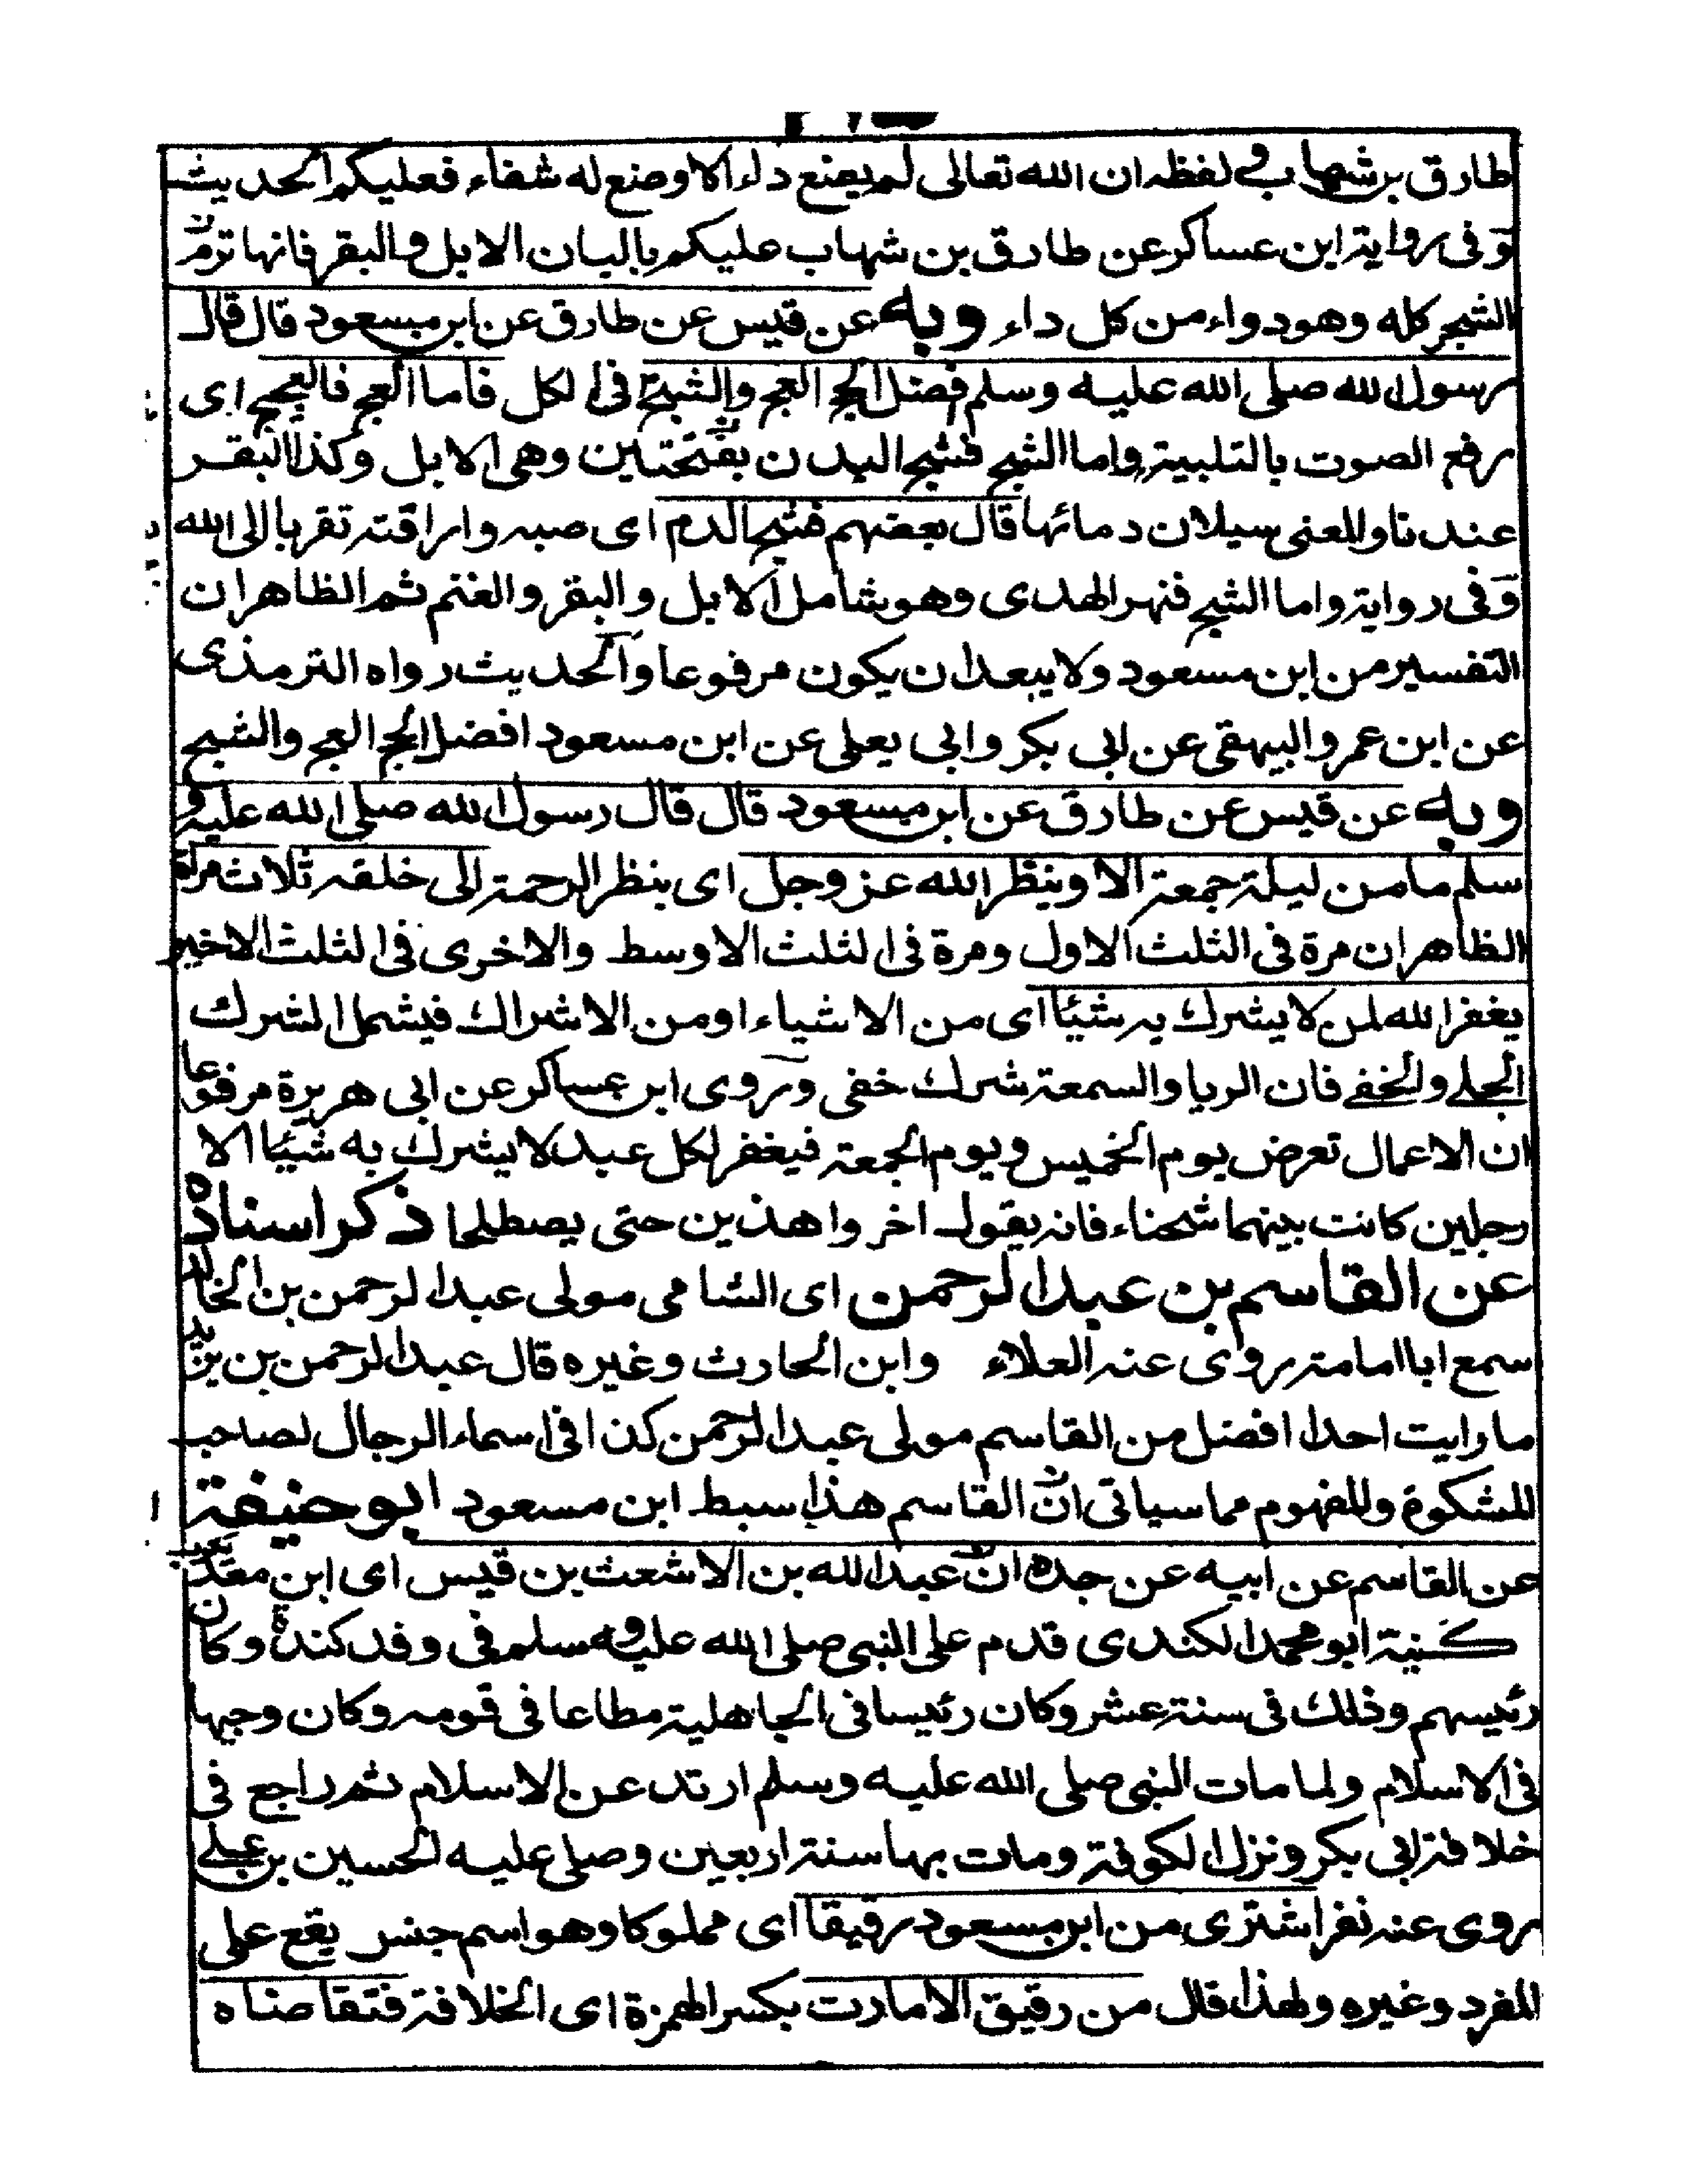 طارق بن شهاب في لفظه ان الله تعالى لم يضع داء الا وضع له شفاء فعليكم الحديث
وفى رواية ابن عساكر عن طارق بن شهاب عليكم بالبان الابل والبقر فانها ترم من
الشجر كله وهو دواء من كل داء وبه عن قيس عن طارق عن ابن مسعود قال قال
رسول الله صلى الله عليه وسلم فضل الحج العج والثج فى الكل فاما العج فالعجيج اى
رفع الصوت بالتلبية واما الثج فثج البدن بفتحتين وهى الابل وكذا البقر
عندنا والمعنى سيلان دمائها قال بعضهم فثج الدم اى صبه واراقته تقربا الى الله
وفى رواية واما الثج فنهر الهدى وهو شامل الابل والبقر والغنم ثم الظاهر ان
التفسير من ابن مسعود ولا يبعد ان يكون مرفوعا والحديث رواه الترمذى
عن ابن عمر والبيهقى عن ابى بكر وابى يعلى عن ابن مسعود افضل الحج العج والثج
وبه عن قيس عن طارق عن ابن مسعود قال قال رسول الله صلى الله عليه و
سلم ما من ليلة جمعة الا وينظر الله عز وجل اى ينظر الرحمة الى خلقه ثلاث مرات
الظاهر ان مرة فى الثلث الاول ومرة فى الثلث الاوسط والاخرى فى الثلث الاخير
يغفر الله لمن لا يشرك به شيئا اى من الاشياء او من الاشراك فيشمل الشرك
الجلي والخفي فان الريا والسمعة شرك خفى وروى ابن عساكر عن ابى هريرة مرفوعا
ان الاعمال تعرض يوم الخميس ويوم الجمعة فيغفر لكل عبد لا يشرك به شيئا الا
رجلين كانت بينهما شحناء فانه يقول اخروا هذين حتى يصطلحا ذكر اسناده
عن القاسم بن عبد الرحمن اى الشامى مولى عبد الرحمن بن الخالد
سمع ابا امامة روى عنه العلاء وابن الحارث وغيره قال عبد الرحمن بن يزيد
ما رايت احدا افضل من القاسم مولى عبد الرحمن كذا فى اسماء الرجال لصاحب
المشكوة والمفهوم مما سياتى ان القاسم هذا سبط ابن مسعود ابو حنيفة
عن القاسم عن ابيه عن جده ان عبد الله بن الاشعث بن قيس اى ابن معديكرب
كنية ابو محمد الكندى قدم على النبى صلى الله عليه وسلم فى وفد كندة وكان
رئيسهم وذلك فى سنة عشر وكان رئيسا فى الجاهلية مطاعا فى قومه وكان وجيها
فى الاسلام ولما مات النبى صلى الله عليه وسلم ارتد عن الاسلام ثم راجع فى
خلافة ابى بكر ونزل الكوفة ومات بها سنة اربعين وصلى عليه الحسين بن علي
روى عنه نفر اشترى من ابن مسعود رقيقا اى مملوكا وهو اسم جنس يقع على
المفرد وغيره ولهذا قال من رقيق الامارت بكسر الهمزة اى الخلافة فتقاضاه